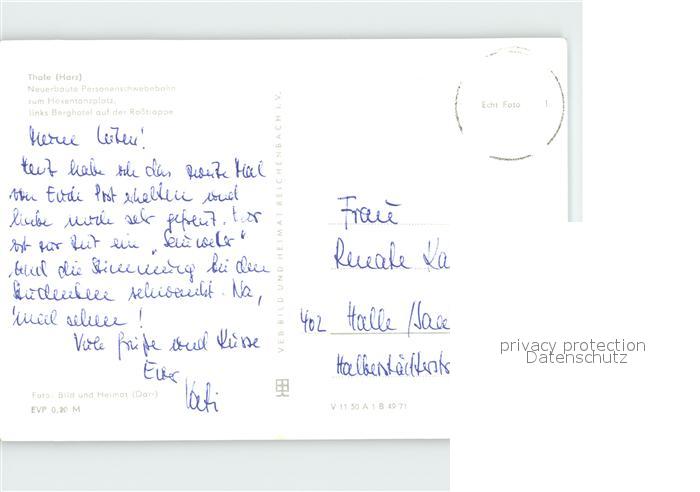 Thale (Harz)
Neuerbaute Personenschwebebahn
zum Hexentanzplatz,
links Berghotel auf der Roßtrappe
Echt Foto
Meine Guten!
Heut habe ich das zweite Mal
von Euch Post erhalten und
habe mich sehr gefreut. Hier
ist zur Zeit ein „Sauwetter"
und die Stimmung bei den
Studenten schwankt. Na,
'mal sehen!
Viele Grüße und Küsse
Eure
Kati
Frau
Renate Ka
402 Halle /Saa
Halberstädterstr
VEB BILD UND HEIMAT REICHENBACH i. V.
Foto: Bild und Heimat (Darr)
EVP 0,20 M
V 11 50 A 1 B 49 71
privacy protection
Datenschutz